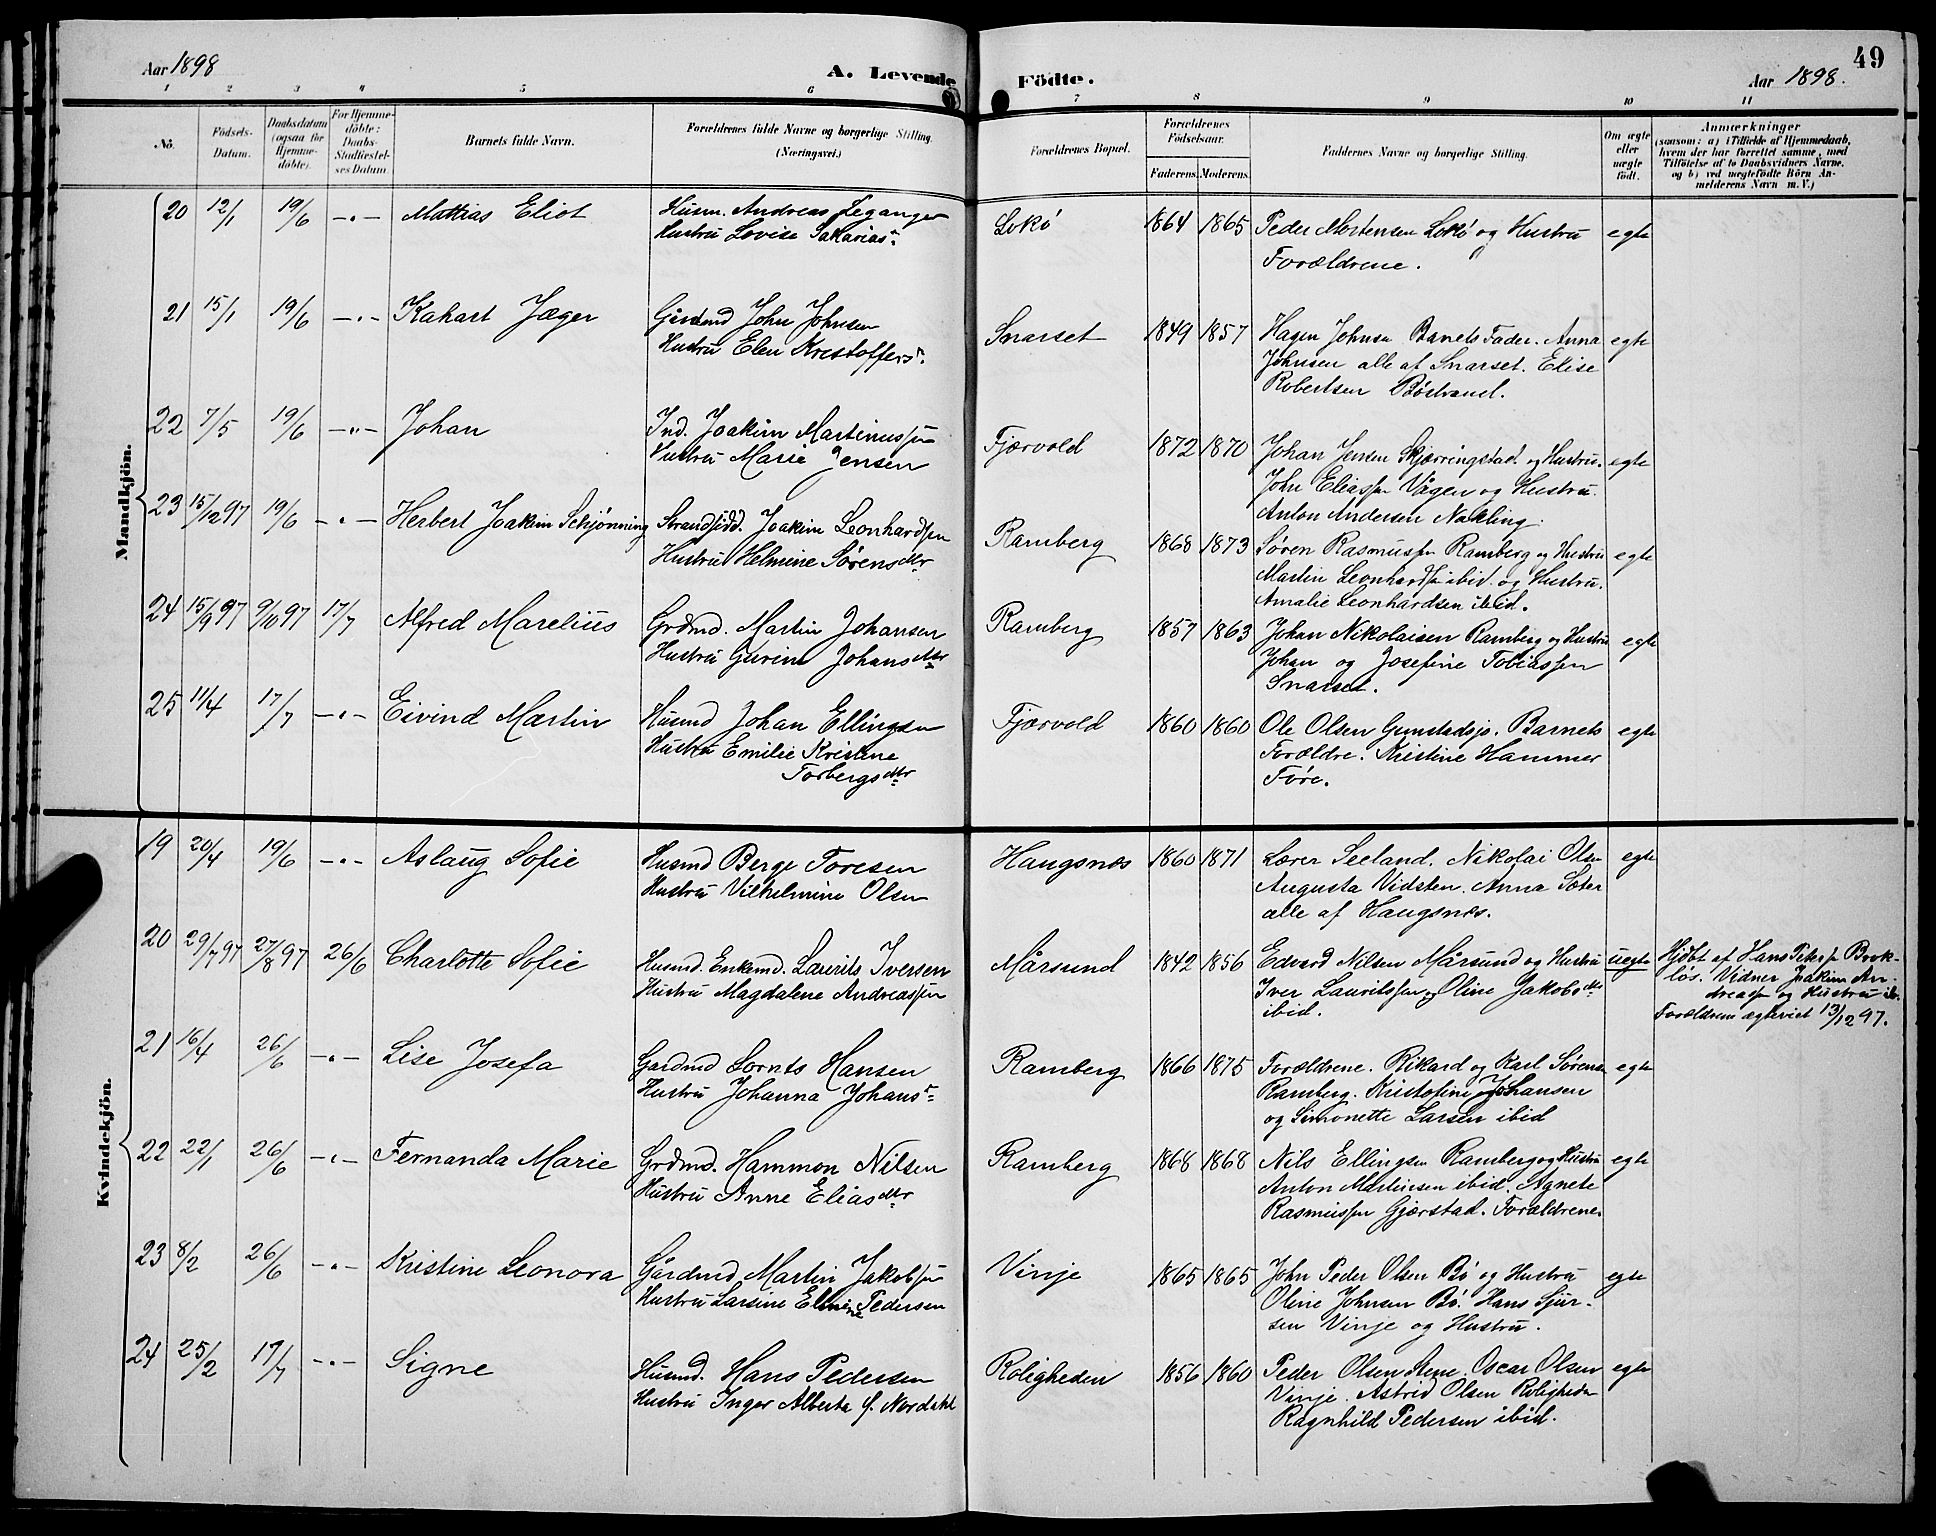 49
Aar 1898
A. Levende Födte.
Aar 1898.
1 2 3 4 5 6 7 8 9 10 11
No.
Födsels-Datum.
Daabsdatum (ogsaa for Hjemme-döbte).
For Hjemme-döbte: Daabs-Stadfæstel-ses Datum.
Barnets fulde Navn.
Forældrenes fulde Navne og borgerlige Stilling.
(Næringsvei.)
Forældrenes Bopæl.
Forældrenes Födselsaar.
Faderens. Moderens.
Faddernes Navne og borgerlige Stilling.
Om ægte eller uægte födt.
Anmærkninger
(saasom: a) i Tilfælde af Hjemmedaab,
hvem der har forrettet samme, med
Tilföielse af to Daabsvidners Navne,
og b) ved uægtefödte Börn An-
melderens Navn m. V.)
Mandkjön.
20 12/1 19/6 -"- Mathias Eliot
Husm. Andreas Leganger
Hustru Lovise Sakarias:
Lokø 1864 1865
Peder Mortensen Lokø og Hustru egte
Forældrene.
21 15/1 19/6 -"- Kahart Jæger
Gårdmd John Johnsen
Hustru Elen Kristoffers:
Snarset 1849 1857
Hagen Johnsen Barnets Fader. Anna egte
Johnsen alle af Snarset. Elise
Robertsen Bøstrand.
22 7/5 19/6 -"- Johan
Ind. Joakim Martinussen
Hustru Marie Jensen
Fjærvold 1872 1870
Johan Jensen Skjørringstad og Hustru. egte
John Eliassen Vågen og Hustru.
Anton Andersen Nakling.
23 15/12 97 19/6 -"- Herbert Joakim Schjønning
Strandsidd. Joakim Leonhardsen
Hustru Helmine Sørensdtr
Ramberg 1868 1873
Søren Rasmussen Ramberg og Hustru egte
Martin Leonhardsen ibid. og Hustru.
Amalie Leonhardsen ibid.
24 15/9 97 9/10 97 17/7 Alfred Marelius
Grdmd. Martin Johansen
Hustru Gurine Johansdtr
Ramberg 1857 1863
Johan Nikolaisen Ramberg og Hustru egte
Johan og Josefine Tobiassen
Snarset.
25 11/4 17/7 -"- Eivind Martin
Husmd Johan Ellingsen
Hustru Emilie Kristine
Torbergsdtr
Fjærvold 1860 1860
Ole Olsen Gunstadsjø. Barnets egte
Forældre. Kristine Hammer
Føre.
Kvindekjön.
19 20/4 19/6 -"- Aslaug Sofie
Husmd Berge Toresen
Hustru Vilhelmine Olsen
Haugsnæs 1860 1871
Lærer Seeland. Nikolai Olsen egte
Augusta Vidsten. Anna Sæter
alle af Haugsnæs.
20 29/7 97 27/8 97 26/6 Charlotte Sofie
Husmd. Enkemd. Laurits Iversen
Hustru Magdalene Andreassen
Mårsund 1842 1856
Edvard Nilsen Mårsund og Hustru uegte
Iver Lauritssen og Oline Jakobsdtr
ibid.
Hjdbt af Hans Petersen Brok-
løs. Vidner Joakim An-
dreassen og Hustru ib.
Forældrene ægteviet 13/12 97.
21 16/4 26/6 -"- Lise Josefa
Gardmd Lornts Hansen
Hustru Johanna Johans:
Ramberg 1866 1875
Forældrene. Rikard og Karl Sørensen egte
Ramberg. Kristofine Johansen
og Simonette Larsen ibid
22 22/1 26/6 -"- Fernanda Marie
Grdmd. Hammon Nilsen
Hustru Anne Eliasdtr
Ramberg 1868 1868
Nils Ellingsen Ramberg og Hustru egte
Anton Martinesen ibid. Agnete
Rasmussen Gjerstad. Forældrene.
23 8/2 26/6 -"- Kristine Leonora
Gårdmd Martin Jakobsen
Hustru Larsine Elmine Pedersen
Vinje 1865 1865
John Peder Olsen Bø og Hustru egte
Oline Johnsen Bø. Hans Sjur-
sen Vinje og Hustru.
24 25/2 17/7 -"- Signe
Husmd. Hans Pedersen
Hustru Inger Alberta f. Nordahl
Roligheden 1856 1860
Peder Olsen Stene. Oscar Olsen egte
Vinje. Astrid Olsen Roligheden
Ragnhild Pedersen ibid.